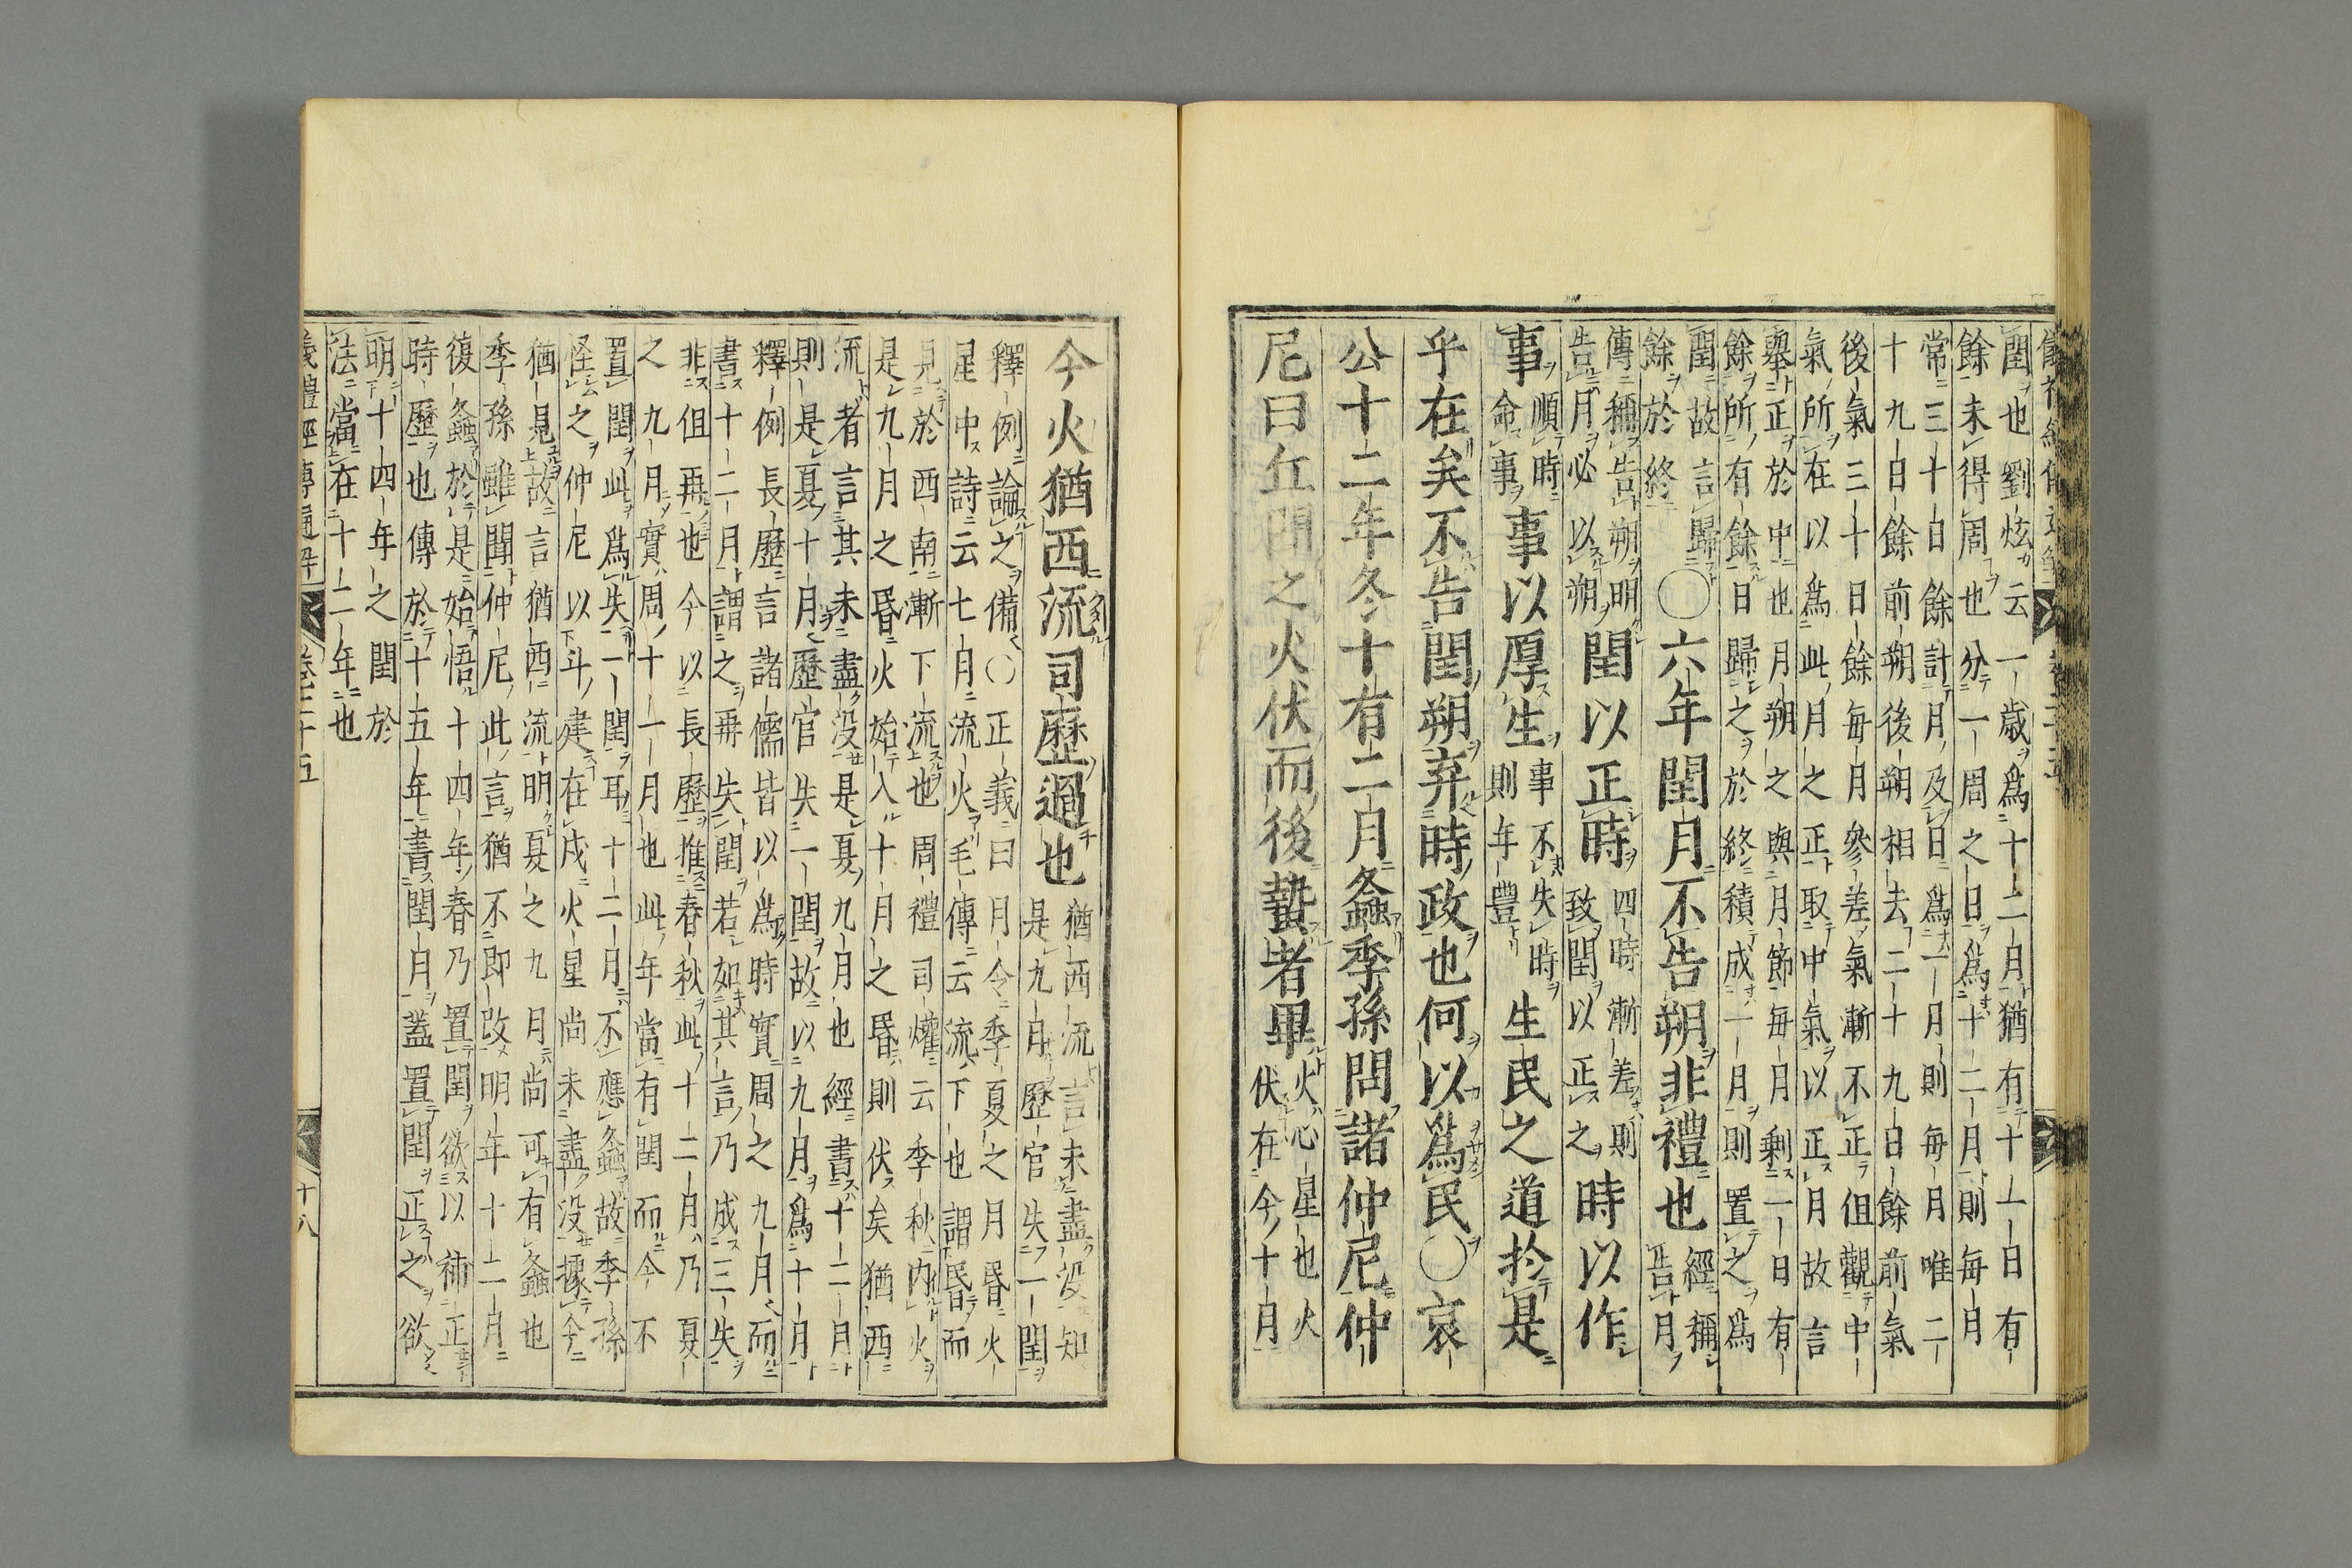 閏也劉炫云一歲爲十二月猶有十一日有
餘未得周也分一周之日爲十二月則每月
常三十日餘計月及日爲一月則每月唯二
十九日餘前朔後朔相去二十九日餘前氣
後氣三十日餘每月參差氣漸不正但觀中
氣所在以爲此月之正取中氣以正月故言
舉正於中也月朔之與月節每月剩一日有
餘所有餘日歸之於終積成一月則置之爲
閏故言歸
餘於終
○六年閏月不告朔非禮也
經稱
告月
傳稱告朔明
告月必以朔
閏以正時
四時漸差則
致閏以正之
時以作
事
順時
命事
事以厚生
事不失時
則年豐
生民之道於是
乎在矣不告閏朔弃時政也何以爲民○哀
公十二年冬十有二月螽季孫問諸仲尼仲
尼曰丘聞之火伏而後蟄者畢
火心星也火
伏在今十月
今火猶西流司歷過也
猶西流言未盡沒知
是九月歷官失一閏
釋例論之備○正義曰月令季夏之月昏火
星中詩云七月流火毛傳云流下也謂昏而
見於西南漸下流也周禮司爟云季秋內火
是九月之昏火始入十月之昏則伏矣猶西
流者言其未盡沒是夏九月也經書十二月
則是夏十月歷官失一閏故以九月爲十月
釋例長歷言諸儒皆以爲時實周之九月而
書十二月謂之再失閏若如其言乃成三失
非但再也今以長歷推春秋此十二月乃夏
之九月實周十一月也此年當有閏而今不
置閏此爲失一閏耳十二月不應螽故季孫
怪之仲尼以斗建在戌火星尚未盡沒據今
猶見故言猶西流明夏之九月尚可有螽也
季孫雖聞仲尼此言猶不即改明年十二月
復螽於是始悟十四年春乃置閏欲以補正
時歷也傳於十五年書閏月蓋置閏正之欲
明十四年之閏於
法當在十二年也
儀禮經傳通解 卷二十五 十八